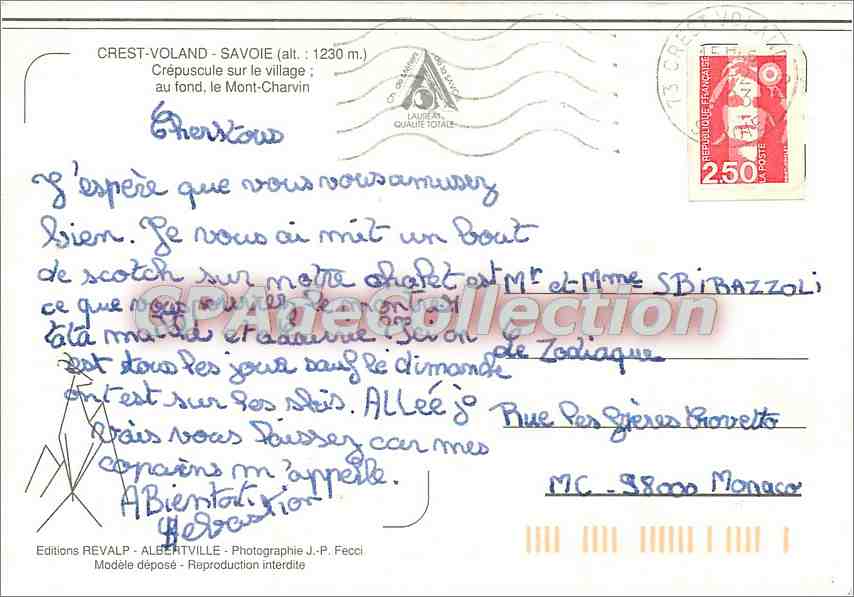 CREST-VOLAND - SAVOIE (alt. : 1230 m.)
Crépuscule sur le village ;
au fond, le Mont-Charvin
Ch. de Métiers de la SAVOIE
LAURÉAT
QUALITÉ TOTALE
73 CREST VOLAND
RÉPUBLIQUE FRANÇAISE
2,50
LA POSTE
Cherstous
J'espère que vous vous amusez
bien. Je vous ai mit un bout
de scotch sur notre chalet est
ce que vous pourrez le montrer
tata et
est tous les jour sauf le dimande
ont est sur les skis. ALLéé je
vais vous laissez car mes
copains m'appelle.
A Bientot
Sebastion
Mr et Mme SBIRAZZOLI
Le Zodiaque
Rue des frères Crovetto
MC - 98000 Monaco
CPAdeCollection
Editions REVALP - ALBERTVILLE - Photographie J.-P. Fecci
Modèle déposé - Reproduction interdite